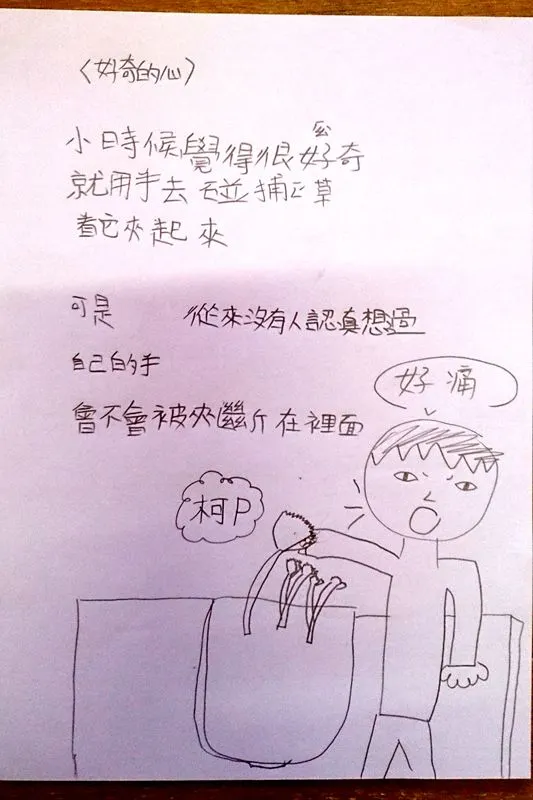 〈好奇的心〉
小時候覺得很好奇
就用手去碰捕ㄥ草
看它夾起來
可是 從來沒有人認真想過
自己的手
會不會被夾斷在裡面
好痛
柯P